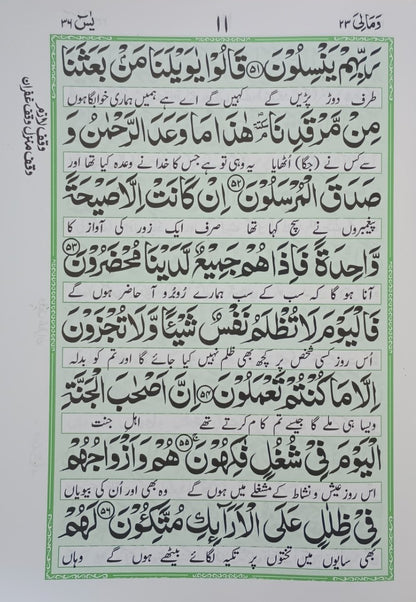 وَمَالِیَ ۲۳
۱۱
یٰسٓ ۳۶
رَبِّهِمْ يَنْسِلُوْنَ ﴿۵۱﴾ قَالُوْا يٰوَيْلَنَا مَنْۢ بَعَثَنَا
طرف دوڑ پڑیں گے کہیں گے اے ہے ہمیں ہماری خوابگاہوں
مِنْ مَّرْقَدِنَا ۘ هٰذَا مَا وَعَدَ الرَّحْمٰنُ وَ
سے کس نے (جگا) اُٹھایا یہ وہی تو ہے جس کا خدا نے وعدہ کیا تھا اور
صَدَقَ الْمُرْسَلُوْنَ ﴿۵۲﴾ اِنْ كَانَتْ اِلَّا صَيْحَةً
پیغمبروں نے سچ کہا تھا صرف ایک زور کی آواز کا
وَّاحِدَةً فَاِذَا هُمْ جَمِيْعٌ لَّدَيْنَا مُحْضَرُوْنَ ﴿۵۳﴾
آنا ہو گا کہ سب کے سب ہمارے رُوبرُو آ حاضر ہوں گے
فَالْيَوْمَ لَا تُظْلَمُ نَفْسٌ شَيْئًا وَّلَا تُجْزَوْنَ
اُس روز کسی شخص پر کچھ بھی ظلم نہیں کیا جائے گا اور تم کو بدلہ
اِلَّا مَا كُنْتُمْ تَعْمَلُوْنَ ﴿۵۴﴾ اِنَّ اَصْحٰبَ الْجَنَّةِ
ویسا ہی ملے گا جیسے تم کام کرتے تھے اہل جنت
الْيَوْمَ فِیْ شُغُلٍ فٰكِهُوْنَ ﴿۵۵﴾ هُمْ وَاَزْوَاجُهُمْ
اس روز عیش و نشاط کے مشغلے میں ہوں گے وہ بھی اور اُن کی بیویاں
فِیْ ظِلٰلٍ عَلَى الْاَرَآئِكِ مُتَّكِـُٔوْنَ ﴿۵۶﴾ لَهُمْ
بھی سایوں میں تختوں پر تکیہ لگائے بیٹھے ہوں گے وہاں
وقف لازم
وقف منزل وقف غفران